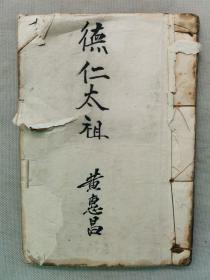 德仁太祖
黄惠昌